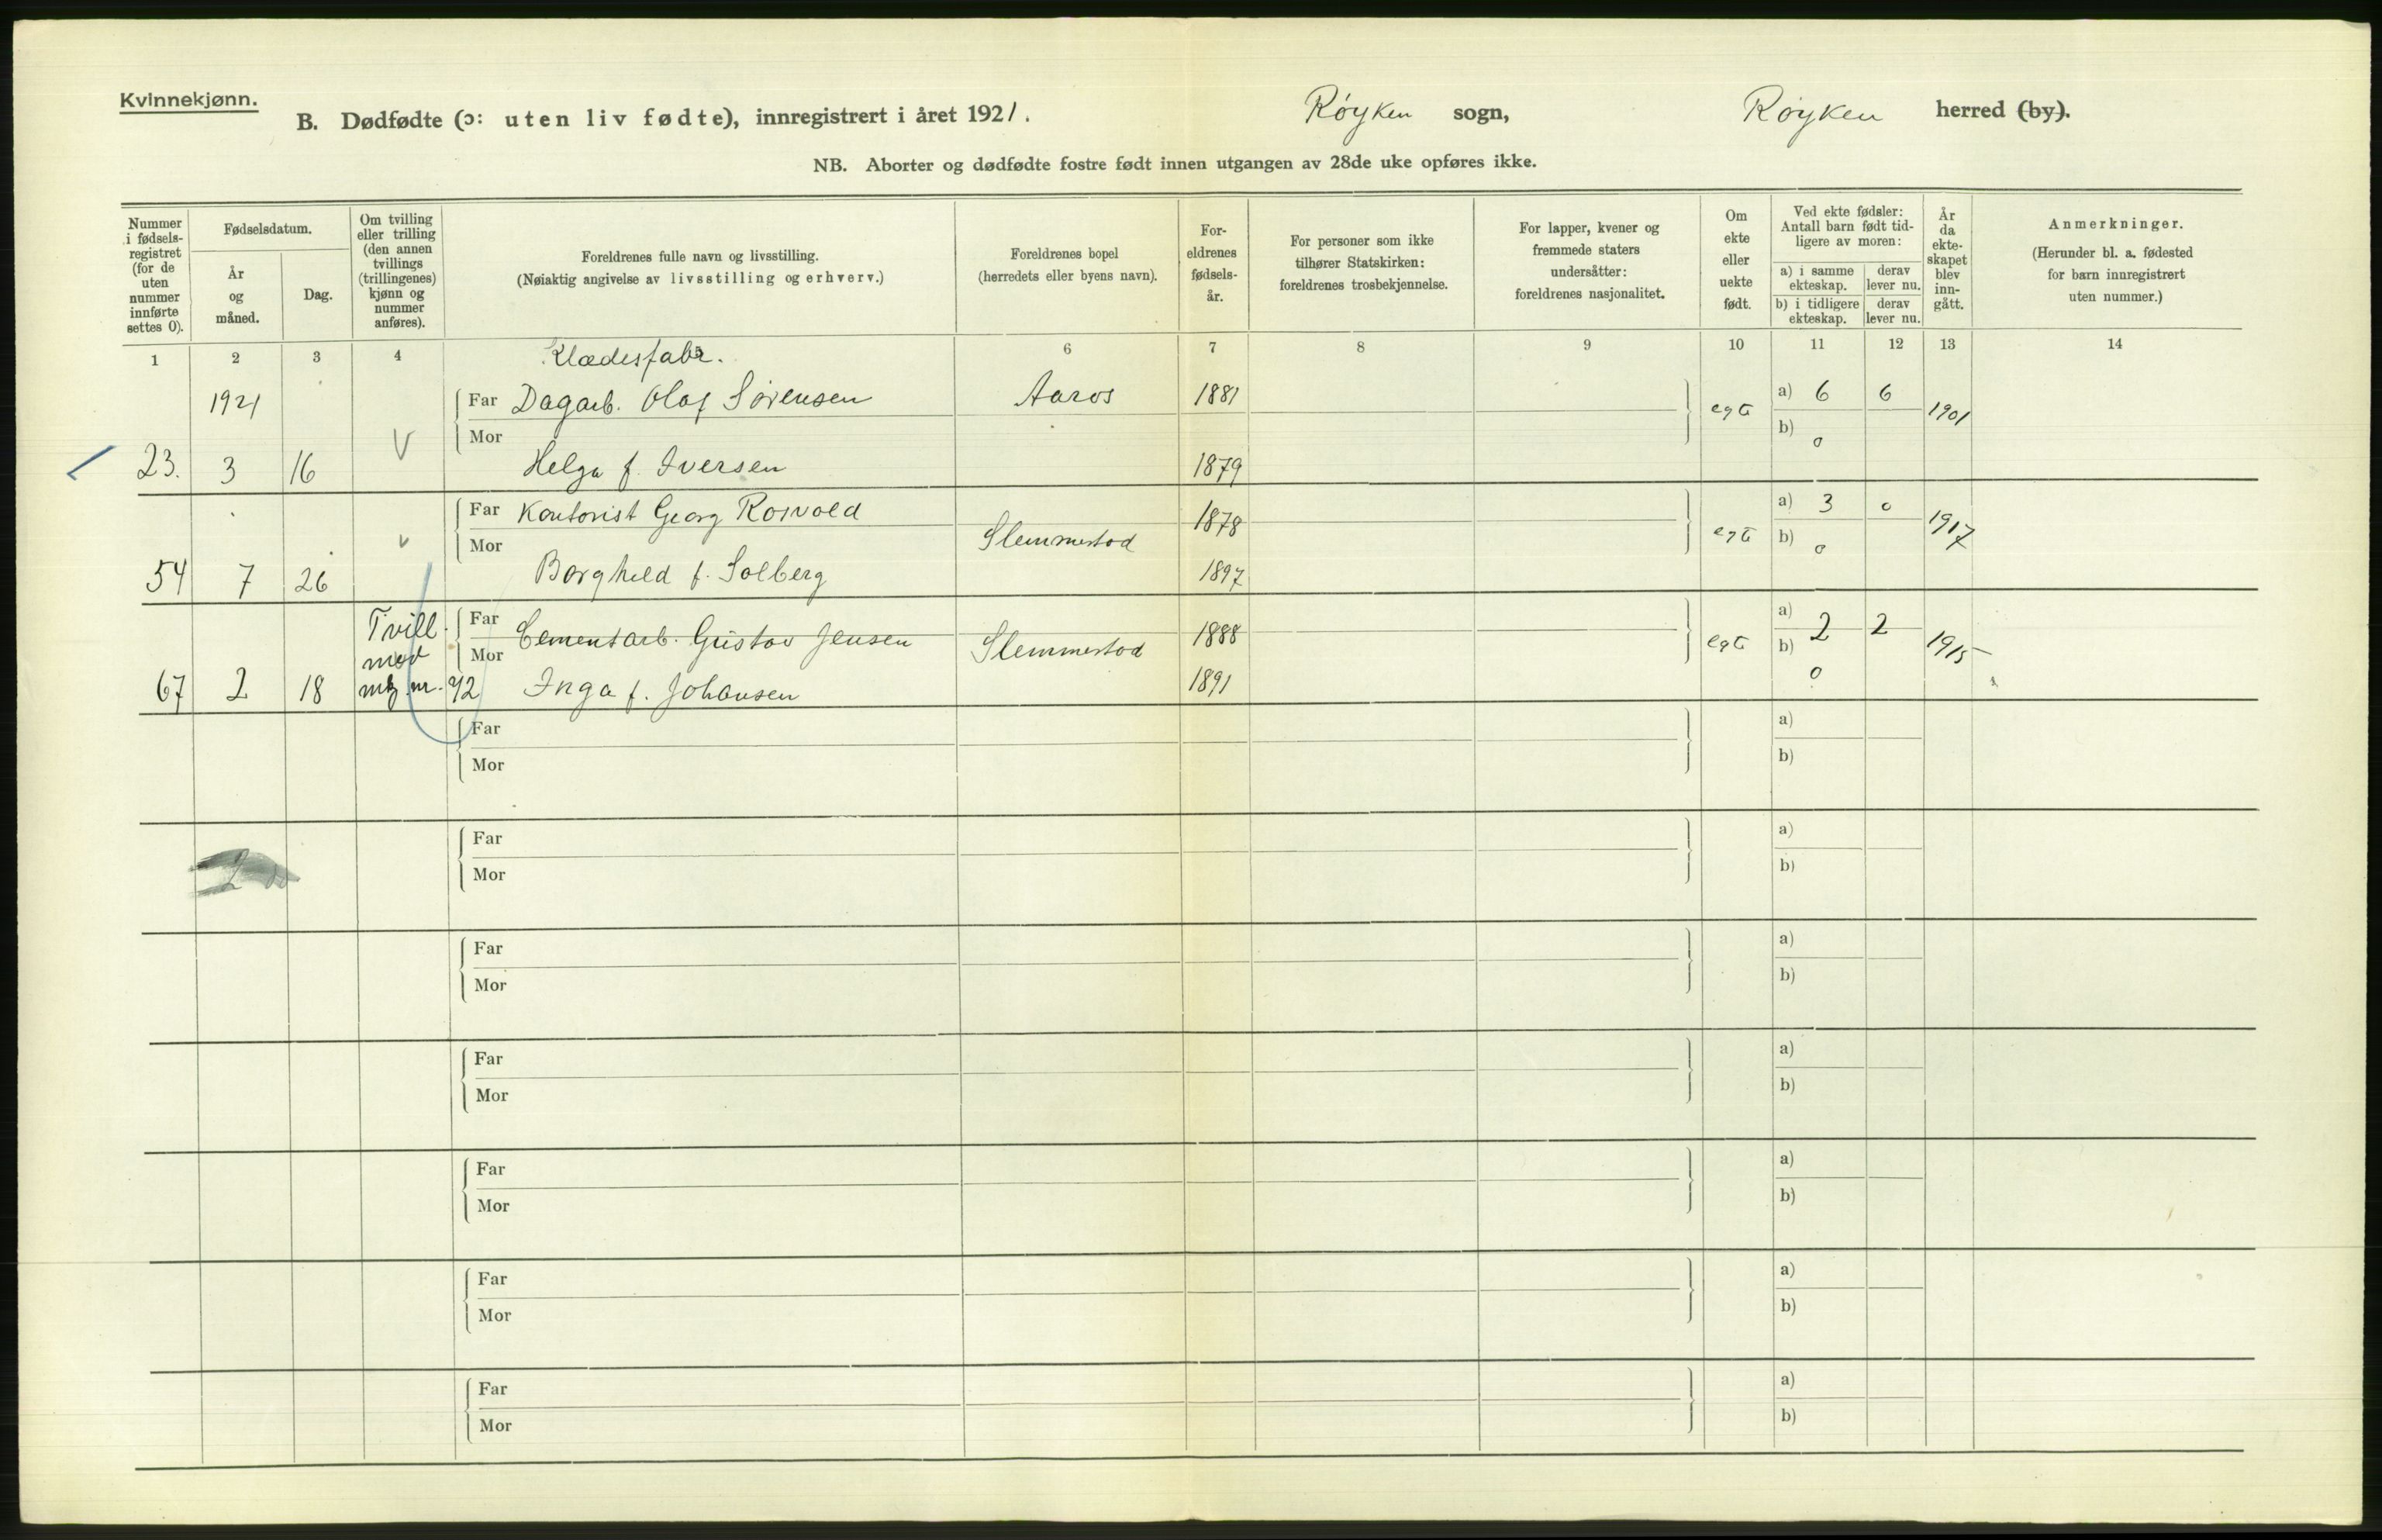 Kvinnekjønn.
B. Dødfødte (ɔ: uten liv fødte), innregistrert i året 1921. Røyken sogn, Røyken herred (by).
NB. Aborter og dødfødte fostre født innen utgangen av 28de uke opføres ikke.
Nummer i fødselsregistret (for de uten nummer innførte settes 0).
Fødselsdatum.
År og måned.
Dag.
Om tvilling eller trilling (den annen tvillings (trillingenes) kjønn og nummer anføres).
Foreldrenes fulle navn og livsstilling.
(Nøiaktig angivelse av livsstilling og erhverv.)
Foreldrenes bopel
(herredets eller byens navn).
Foreldrenes fødselsår.
For personer som ikke tilhører Statskirken: foreldrenes trosbekjennelse.
For lapper, kvener og fremmede staters undersåtter: foreldrenes nasjonalitet.
Om ekte eller uekte født.
Ved ekte fødsler: Antall barn født tidligere av moren:
a) i samme ekteskap. derav lever nu.
b) i tidligere ekteskap. derav lever nu.
År da ekteskapet blev inngått.
Anmerkninger.
(Herunder bl. a. fødested for barn innregistrert uten nummer.)
1 2 3 4 6 7 8 9 10 11 12 13 14
Klædesfabr.
1921 Far Dagarb. Olaf Sørensen Aaros 1881 egte a) 6 6 1901
Mor b) 0
23. 3 16 V Helga f. Iversen 1879
Far Kontorist Georg Rosvold Slemmestad 1878 egte a) 3 0 1917
Mor b) 0
54 7 26 v Borghild f. Solberg 1897
Tvill. Far Cementarb. Gustav Jensen Slemmestad 1888 egte a) 2 2 1915
med Mor b) 0
67 2 18 mk nr. 42 Inga f. Johansen 1891
Far a)
Mor b)
Far a)
Mor b)
Far a)
Mor b)
Far a)
Mor b)
Far a)
Mor b)
Far a)
Mor b)
Far a)
Mor b)